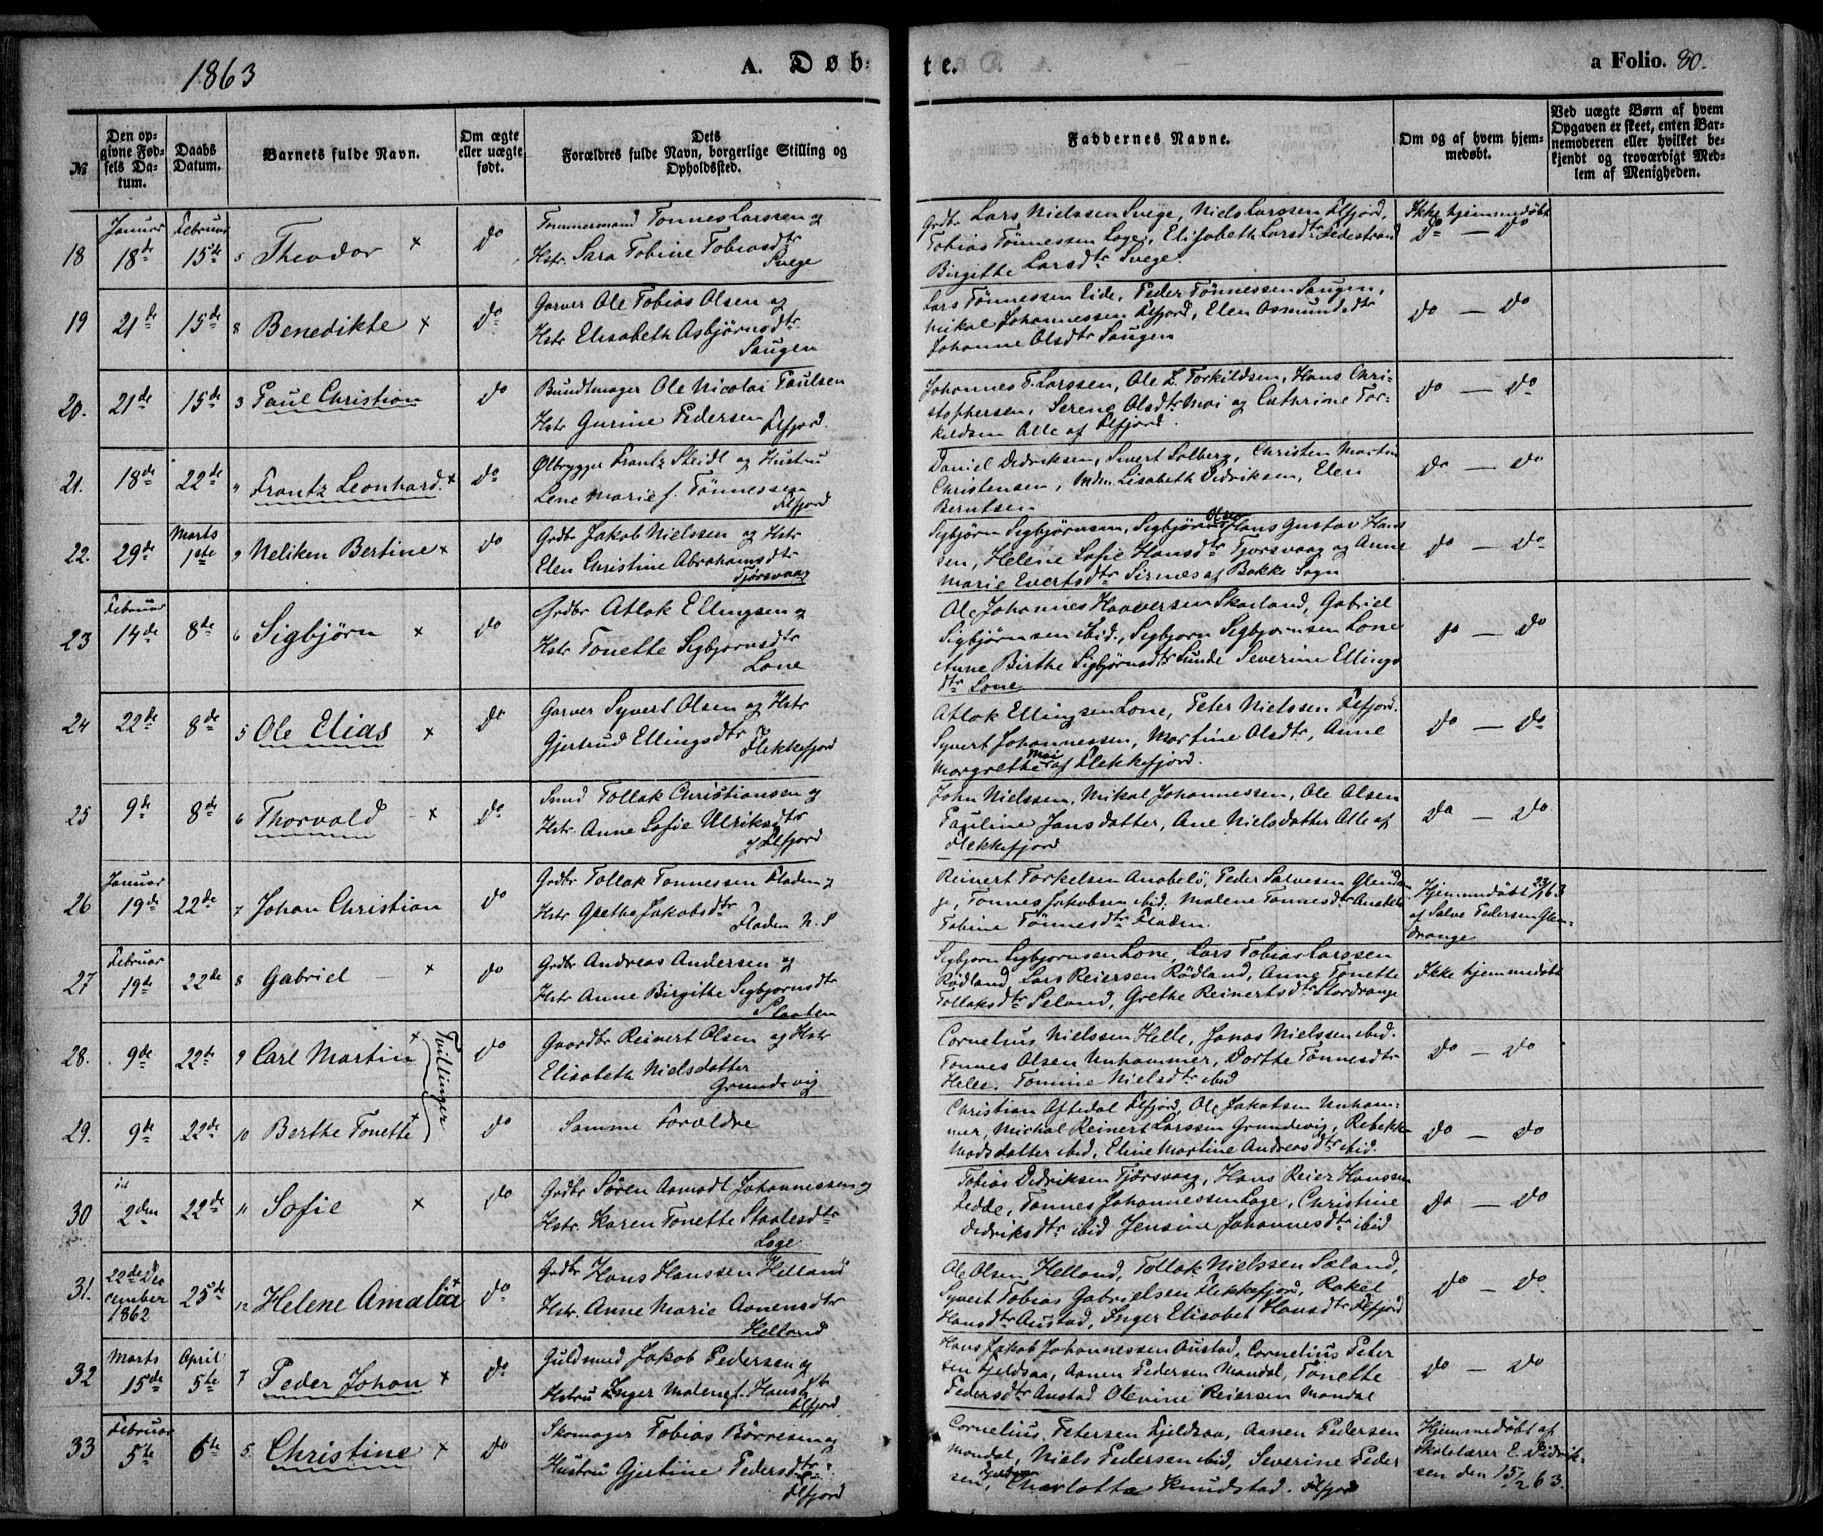 1863
A. Døb-
te.
a Folio. 80.
№
Den op-
givne Fød-
sels Da-
tum.
Daabs
Datum.
Barnets fulde Navn.
Om ægte
eller uægte
født.
Dets
Forældres fulde Navn, borgerlige Stilling og
Opholdssted.
Faddernes Navne.
Om og af hvem hjem-
medøbt.
Ved uægte Børn af hvem
Opgaven er skeet, enten Bar-
nemoderen eller hvilket be-
kjendt og troværdigt Med-
lem af Menigheden.
18
Januar
18de
Februar
15de
5 Theodor ×
do
Tømmermand Tønnes Larssen og
Hstr. Sara Tobine Tobiasdtr
Svege
Grdbr Lars Nielssen Svege, Niels Larssen Flfjord,
Tobias Tønnessen Loge, Elisabeth Larsdtr Fedestrand
Birgitte Larsdtr Svege.
Ikke hjemmedøbt
do — do
19
21de
15de
8 Benedikte ×
do
Garver Ole Tobias Olsen og
Hstr Elisabeth Asbjørnsdtr
Saugen
Lars Tønnessen Eide, Peder Tønnessen Saugen,
Mikal Johannessen Flfjord, Elen Osmundsdtr
Johanne Olsdtr Saugen
do — do
20.
21de
15de
3 Paul Christian
do
Bundtmager Ole Nicolai Paulsen
Hstr Gurine Pedersen Flfjord.
Johannes T. Larssen, Ole L. Torkildsen, Hans Chri-
stophersen, Serene Olsdtr Moi og Cathrine Tor-
kildsen Alle af Flfjord.
do — do
21.
18de
22de
4 Frantz Leonhard. ×
do
Ølbrygger Frantz Steidl og Hustru
Lene Marie f. Tønnessen
Flfjord
Daniel Dedriksen, Sivert Solberg, Christen Martin
Christensen, Mdm. Lisabeth Didriksen, Elen
Berntsen
do — do
22.
29de
Marts
1ste
9 Neliken Bertine ×
do
Grdbr Jakob Nielssen og Hstr
Elen Christine Abrahamsdtr
Tjørsvaag
Sigbjørn Sigbjørnsen, Sigbjørn Olsen Hans Gustav Hans
sen, Helene Sofie Hansdtr Tjorsvaag og Anne
Marie Evertsdtr Sirnes af Bakke Sogn
do — do
23
Februar
14de
8de
6 Sigbjörn ×
do
Grdbr Atlak Ellingsen og
Hstr Tonette Sigbjornsdtr
Lone
Ole Johannes Haaversen Skarland, Gabriel
Sigbjørnsen ibid., Sigbjorn Sigbjornsen Lone
Anne Birthe Sigbjørnsdtr Sunde Severine Ellings
dtr Lone
do — do
24
22de
8de
5 Ole Elias ×
do
Garver Syvert Olsen og Hstr
Gjertrud Ellingsdtr
Flekkefjord
Atlak Ellingsen Lone, Peter Nielssen Flfjord.
Syvert Johannessen, Martine Olsdtr, Anne
Margrethe Moi af Flekkefjord.
do — do
25
9de
8de
6 Thorvald - ×
do
Smed Tollak Christiansen og
Hstr. Anne Sofie Ulriksdtr
af Flfjord
John Nielssen, Mikal Johannessen, Ole Olsen
Pauline Jansdatter, Ane Nielsdatter Alle af
Flekkefjord
do — do
26
Januar
19de
22de
7 Johan Christian
do
Grdbr Tollak Tonnessen Fladen og
Hstr Grethe Jakobsdtr
Fladen N. S
Reinert Torkelsen Anabelö, Peder Salvesen Glendran
ge, Tonnes Jakobsen ibid. Malene Tonnesdtr Anabelö
Tobine Tönnesdtr Fladen.
Hjemmedøbt 22/1 63
af Salve Pedersen Glen-
drange
27
Februar
19de
22de
8 Gabriel — ×
do
Grdbr Andreas Andersen og
Hstr Anne Birgithe Sigbjornsdtr
Plaaten
Sigbjorn Sigbjornsen Lone, Lars Tobias Larssen
Rødland, Lars Reiersen Rødland, Anne Tonette
Tollaksdtr Seland, Grethe Reinertsdtr Stordrange
Ikke hjemmedøbt
28.
9de
22de
9 Carl Martin ×
Tvillinger
do
Gaardbr Reinert Olsen og Hstr
Elisabeth Nielsdatter
Grundevig
Cornelius Nielssen Helle, Jonas Nielssen ibid.
Tonnes Olsen Unhammer, Dorthe Tönnesdtr
Helle. Tomine Nielsdtr ibid
do — do
29.
9de
22de
10 Berthe Tonette ×
do
Samme Forældre
Christian Aftedal Flfjord, Ole Jakobsen Unham-
mer, Michal Reinert Larssen Grundevig, Rebekka
Madsdatter ibid, Eline Martine Andreasdtr ibid.
do — do
30
id
2den
22de
11 Sofie ×
do
Grdbr Søren Aamodt Johannessen og
Hstr. Karen Tonette Staalesdtr
Loge
Tobias Didriksen Tjørsvaag, Hans Reier Hanssen
Fedde, Tonnes Johannessen Loge, Christine
Didriksdtr ibid Jensine Johannesdtr ibid
do — do
31.
22de De
cember
1862
25de
12 Helene Amalia ×
do
Grdbr Hans Hanssen Helland og
Hstr. Anne Marie Aanensdtr
Helland
Ole Olsen Helland, Tollak Nielssen Sæland,
Syvert Tobias Gabrielsen Flekkefjord, Rakel
Hansdtr Austad, Inger Elisabet Hansdtr Flfjord
do — do
32
Marts
15de
April
5te
7 Peder Johan ×
do
Guldsmed Jakob Pedersen og
Hstru Inger Malene f. Hansdtr
Flfjord
Hans Jakob Johannessen Austad, Cornelius Peter
sen Fjeldsaa, Aanen Pedersen Mandal, Tonette
Pedersdtr Austad Olevine Reiersen Mandal
do — do
33
Februar
5te
6te
5. Christine ×
do
Skomager Tobias Børresen og
Hustru Gjertine Pedersdtr
Flfjord
Cornelius Petersen Fjeldsaa, Aanen Pedersen
Mandal, Niels Pedersen ibid, Severine Peder
sen, Charlotta Knudstad. Flfjord
Hjemmedøbt af
Skolelærer E. Didrik-
sen den 15/2 63.